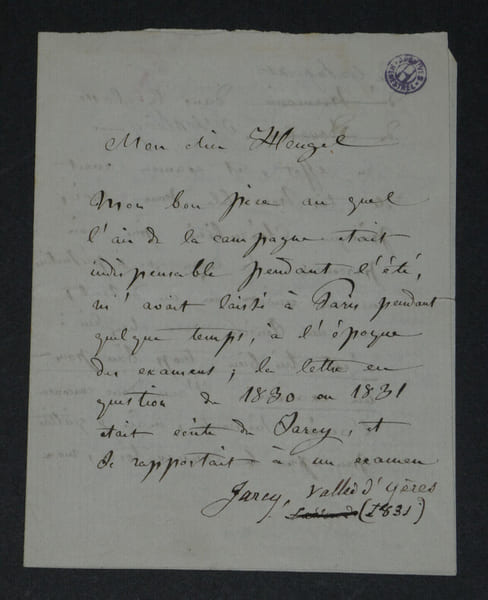 Mon cher Heugel
Mon bon père au quel
l'air de la campagne était
indispensable pendant l'été,
m'avait laissé à Paris pendant
quelque temps, à l'époque
des examens; la lettre en
question de 1830 ou 1831
était écrite de Jarcy, et
se rapportait à un examen
Jarcy, vallée d'Yères
(1831)